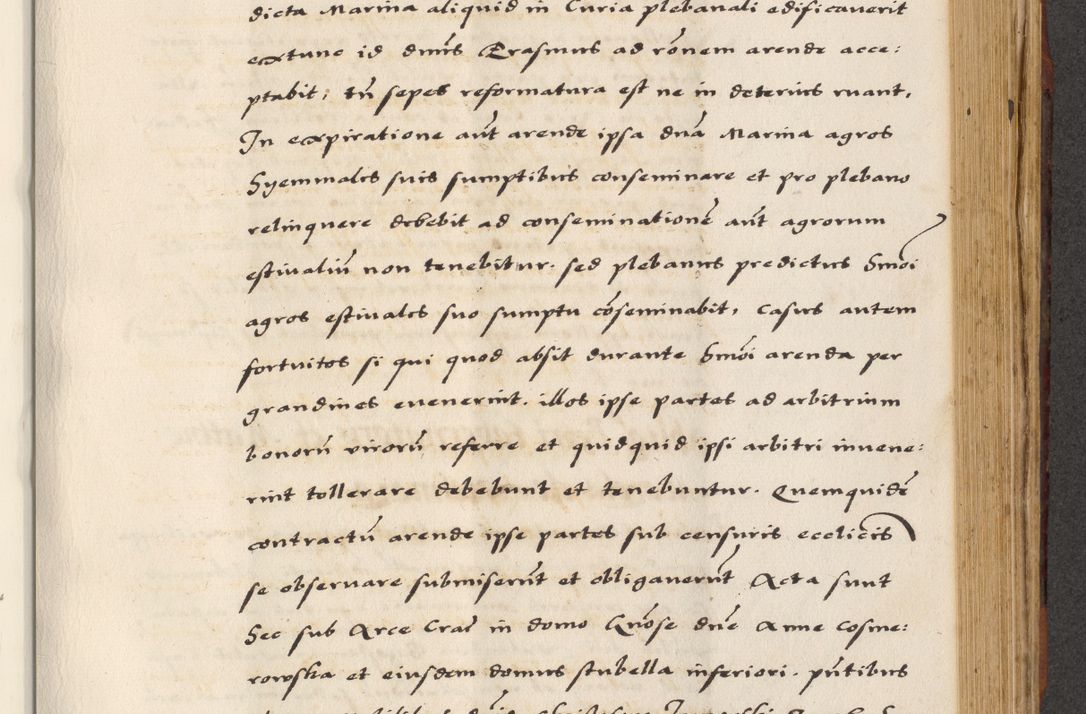 dicta Marina aliquid in Curia plebanali edificaverit
extunc id dnus Erasmus ad rōnem arende acce:
ptabit, tn̄ sepes reformatura est ne in deterius ruant,
In expiratione aūt arende ipsa dn̄a Marina agros
hyemmales suis sumptibus conseminare et pro plebano
relinquere debebit ad conseminationē aūt agrorum
estivaliū non tenebitur. sed plebanus predictus hmōi
agros estivales suo sumptu cōseminabit, Casus autem
fortuitos si qui quod absit durante hmōi arenda per
grandines evenerint. illos ipse partes ad arbitrium
bonorū virorū referre et quidquid ipsi arbitri invene:
rint tollerare debebunt et tenebuntur. Quemquidē
contractū arende ipse partes sub censuris ecclīcis
se observare submiserūt et obligaverūt Acta sunt
hec sub Arce Crač in domo Gn̄ose dn̄e Anne Cosme:
rowska et eiusdem domus stubella inferiori. pn̄tibus